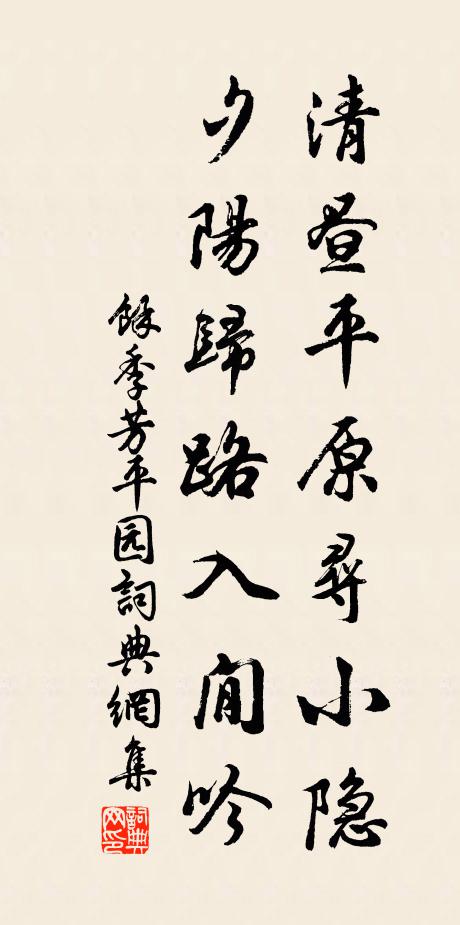 清昼平原尋小隐
夕陽歸路入閒吟
餘季芳平园詞典網集
詞典网印